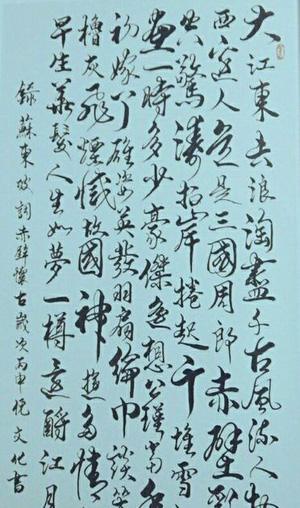 大江東去浪淘盡千古風流人物
西邊人道是三國周郎赤壁亂
驚濤拍岸捲起千堆雪
畫一時多少豪傑遙想公瑾當年
初嫁了雄姿英發羽扇綸巾談笑
櫓灰飛煙滅故國神遊多情
早生華髮人生如夢一樽還酹江月
錄蘇東坡詞赤壁懷古歲次丙申悅文化書